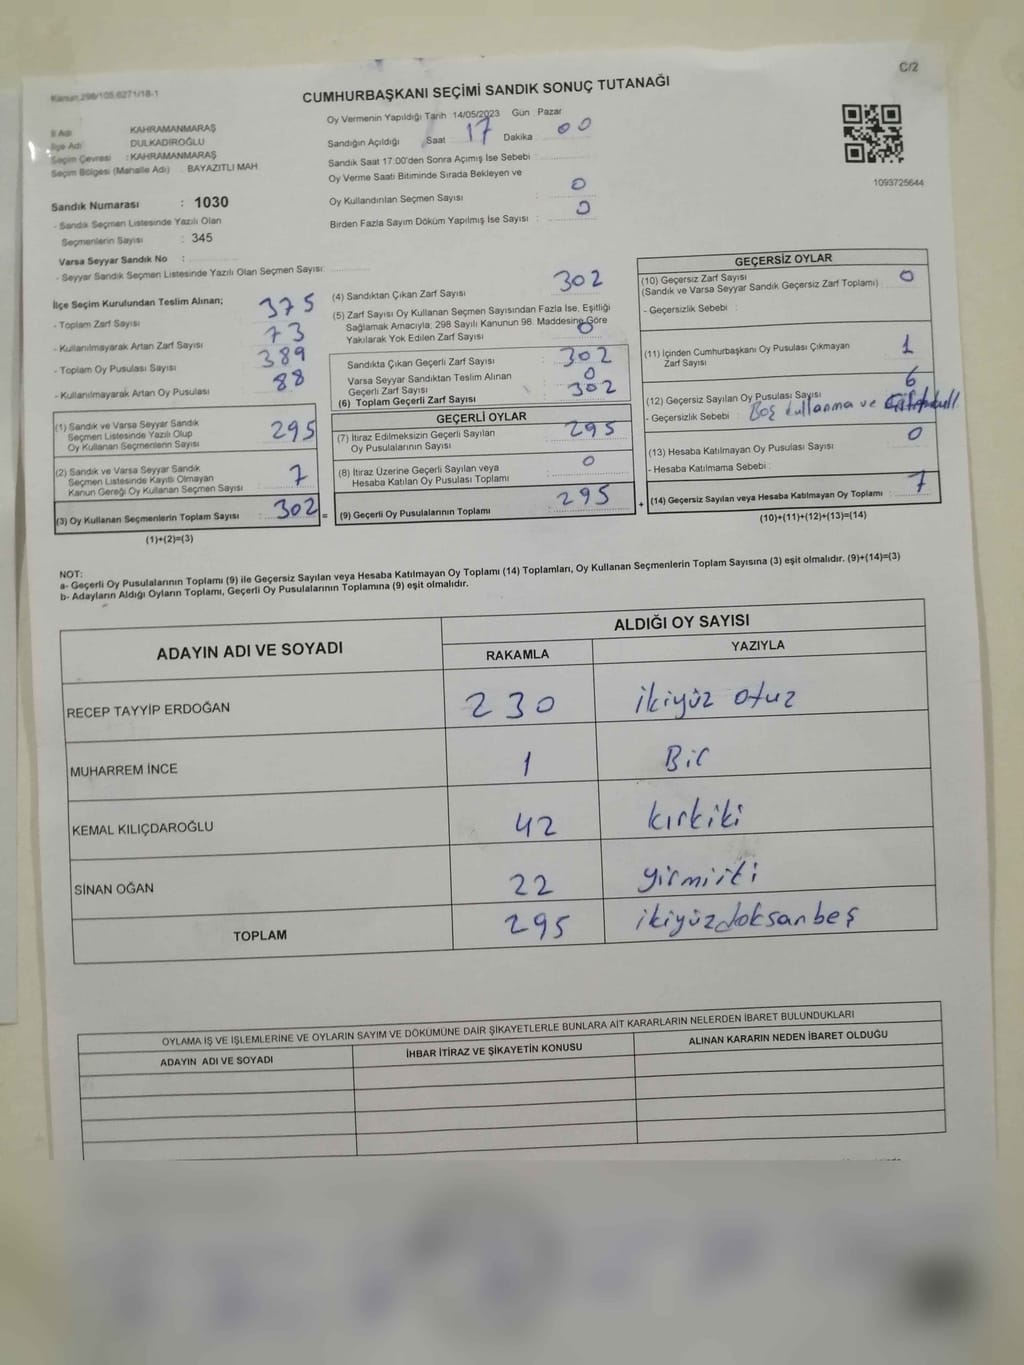 C/2
Kanun 298/105,6271/18-1
CUMHURBAŞKANI SEÇİMİ SANDIK SONUÇ TUTANAĞI
İl Adı KAHRAMANMARAŞ
İlçe Adı DULKADİROĞLU
Seçim Çevresi : KAHRAMANMARAŞ
Seçim Bölgesi (Mahalle Adı) BAYAZITLI MAH
Oy Vermenin Yapıldığı Tarih 14/05/2023 Gün Pazar
Sandığın Açıldığı Saat 17 Dakika 00
Sandık Saat 17.00'den Sonra Açımış İse Sebebi
Oy Verme Saati Bitiminde Sırada Bekleyen ve
Oy Kullandırılan Seçmen Sayısı : 0
Birden Fazla Sayım Döküm Yapılmış İse Sayısı : 0
1093725644
Sandık Numarası : 1030
- Sandık Seçmen Listesinde Yazılı Olan
Seçmenlerin Sayısı : 345
Varsa Seyyar Sandık No :
- Seyyar Sandık Seçmen Listesinde Yazılı Olan Seçmen Sayısı:
İlçe Seçim Kurulundan Teslim Alınan;
- Toplam Zarf Sayısı 375
- Kullanılmayarak Artan Zarf Sayısı 73
- Toplam Oy Pusulası Sayısı 389
- Kullanılmayarak Artan Oy Pusulası 88
(1) Sandık ve Varsa Seyyar Sandık
Seçmen Listesinde Yazılı Olup
Oy Kullanan Seçmenlerin Sayısı 295
(2) Sandık ve Varsa Seyyar Sandık
Seçmen Listesinde Kayıtlı Olmayan
Kanun Gereği Oy Kullanan Seçmen Sayısı 7
(3) Oy Kullanan Seçmenlerin Toplam Sayısı : 302 =
(1)+(2)=(3)
(4) Sandıktan Çıkan Zarf Sayısı 302
(5) Zarf Sayısı Oy Kullanan Seçmen Sayısından Fazla İse, Eşitliği
Sağlamak Amacıyla; 298 Sayılı Kanunun 98. Maddesine Göre
Yakılarak Yok Edilen Zarf Sayısı 0
Sandıkta Çıkan Geçerli Zarf Sayısı : 302
Varsa Seyyar Sandıktan Teslim Alınan
Geçerli Zarf Sayısı 0
(6) Toplam Geçerli Zarf Sayısı : 302
GEÇERLİ OYLAR
(7) İtiraz Edilmeksizin Geçerli Sayılan
Oy Pusulalarının Sayısı : 295
(8) İtiraz Üzerine Geçerli Sayılan veya
Hesaba Katılan Oy Pusulası Toplamı : 0
(9) Geçerli Oy Pusulalarının Toplamı : 295 +
GEÇERSİZ OYLAR
(10) Geçersiz Zarf Sayısı
(Sandık ve Varsa Seyyar Sandık Geçersiz Zarf Toplamı) : 0
- Geçersizlik Sebebi :
(11) İçinden Cumhurbaşkanı Oy Pusulası Çıkmayan
Zarf Sayısı 1
(12) Geçersiz Sayılan Oy Pusulası Sayısı 6
- Geçersizlik Sebebi : Boş kullanma ve
(13) Hesaba Katılmayan Oy Pusulası Sayısı 0
- Hesaba Katılmama Sebebi :
(14) Geçersiz Sayılan veya Hesaba Katılmayan Oy Toplamı : 7
(10)+(11)+(12)+(13)=(14)
NOT:
a- Geçerli Oy Pusulalarının Toplamı (9) ile Geçersiz Sayılan veya Hesaba Katılmayan Oy Toplamı (14) Toplamları, Oy Kullanan Seçmenlerin Toplam Sayısına (3) eşit olmalıdır. (9)+(14)=(3)
b- Adayların Aldığı Oyların Toplamı, Geçerli Oy Pusulalarının Toplamına (9) eşit olmalıdır.
ADAYIN ADI VE SOYADI ALDIĞI OY SAYISI
RAKAMLA YAZIYLA
RECEP TAYYİP ERDOĞAN 230 ikiyüz otuz
MUHARREM İNCE 1 Bir
KEMAL KILIÇDAROĞLU 42 kırkiki
SİNAN OĞAN 22 yirmiiki
TOPLAM 295 ikiyüzdoksanbeş
OYLAMA İŞ VE İŞLEMLERİNE VE OYLARIN SAYIM VE DÖKÜMÜNE DAİR ŞİKAYETLERLE BUNLARA AİT KARARLARIN NELERDEN İBARET BULUNDUKLARI
ADAYIN ADI VE SOYADI İHBAR İTİRAZ VE ŞİKAYETİN KONUSU ALINAN KARARIN NEDEN İBARET OLDUĞU